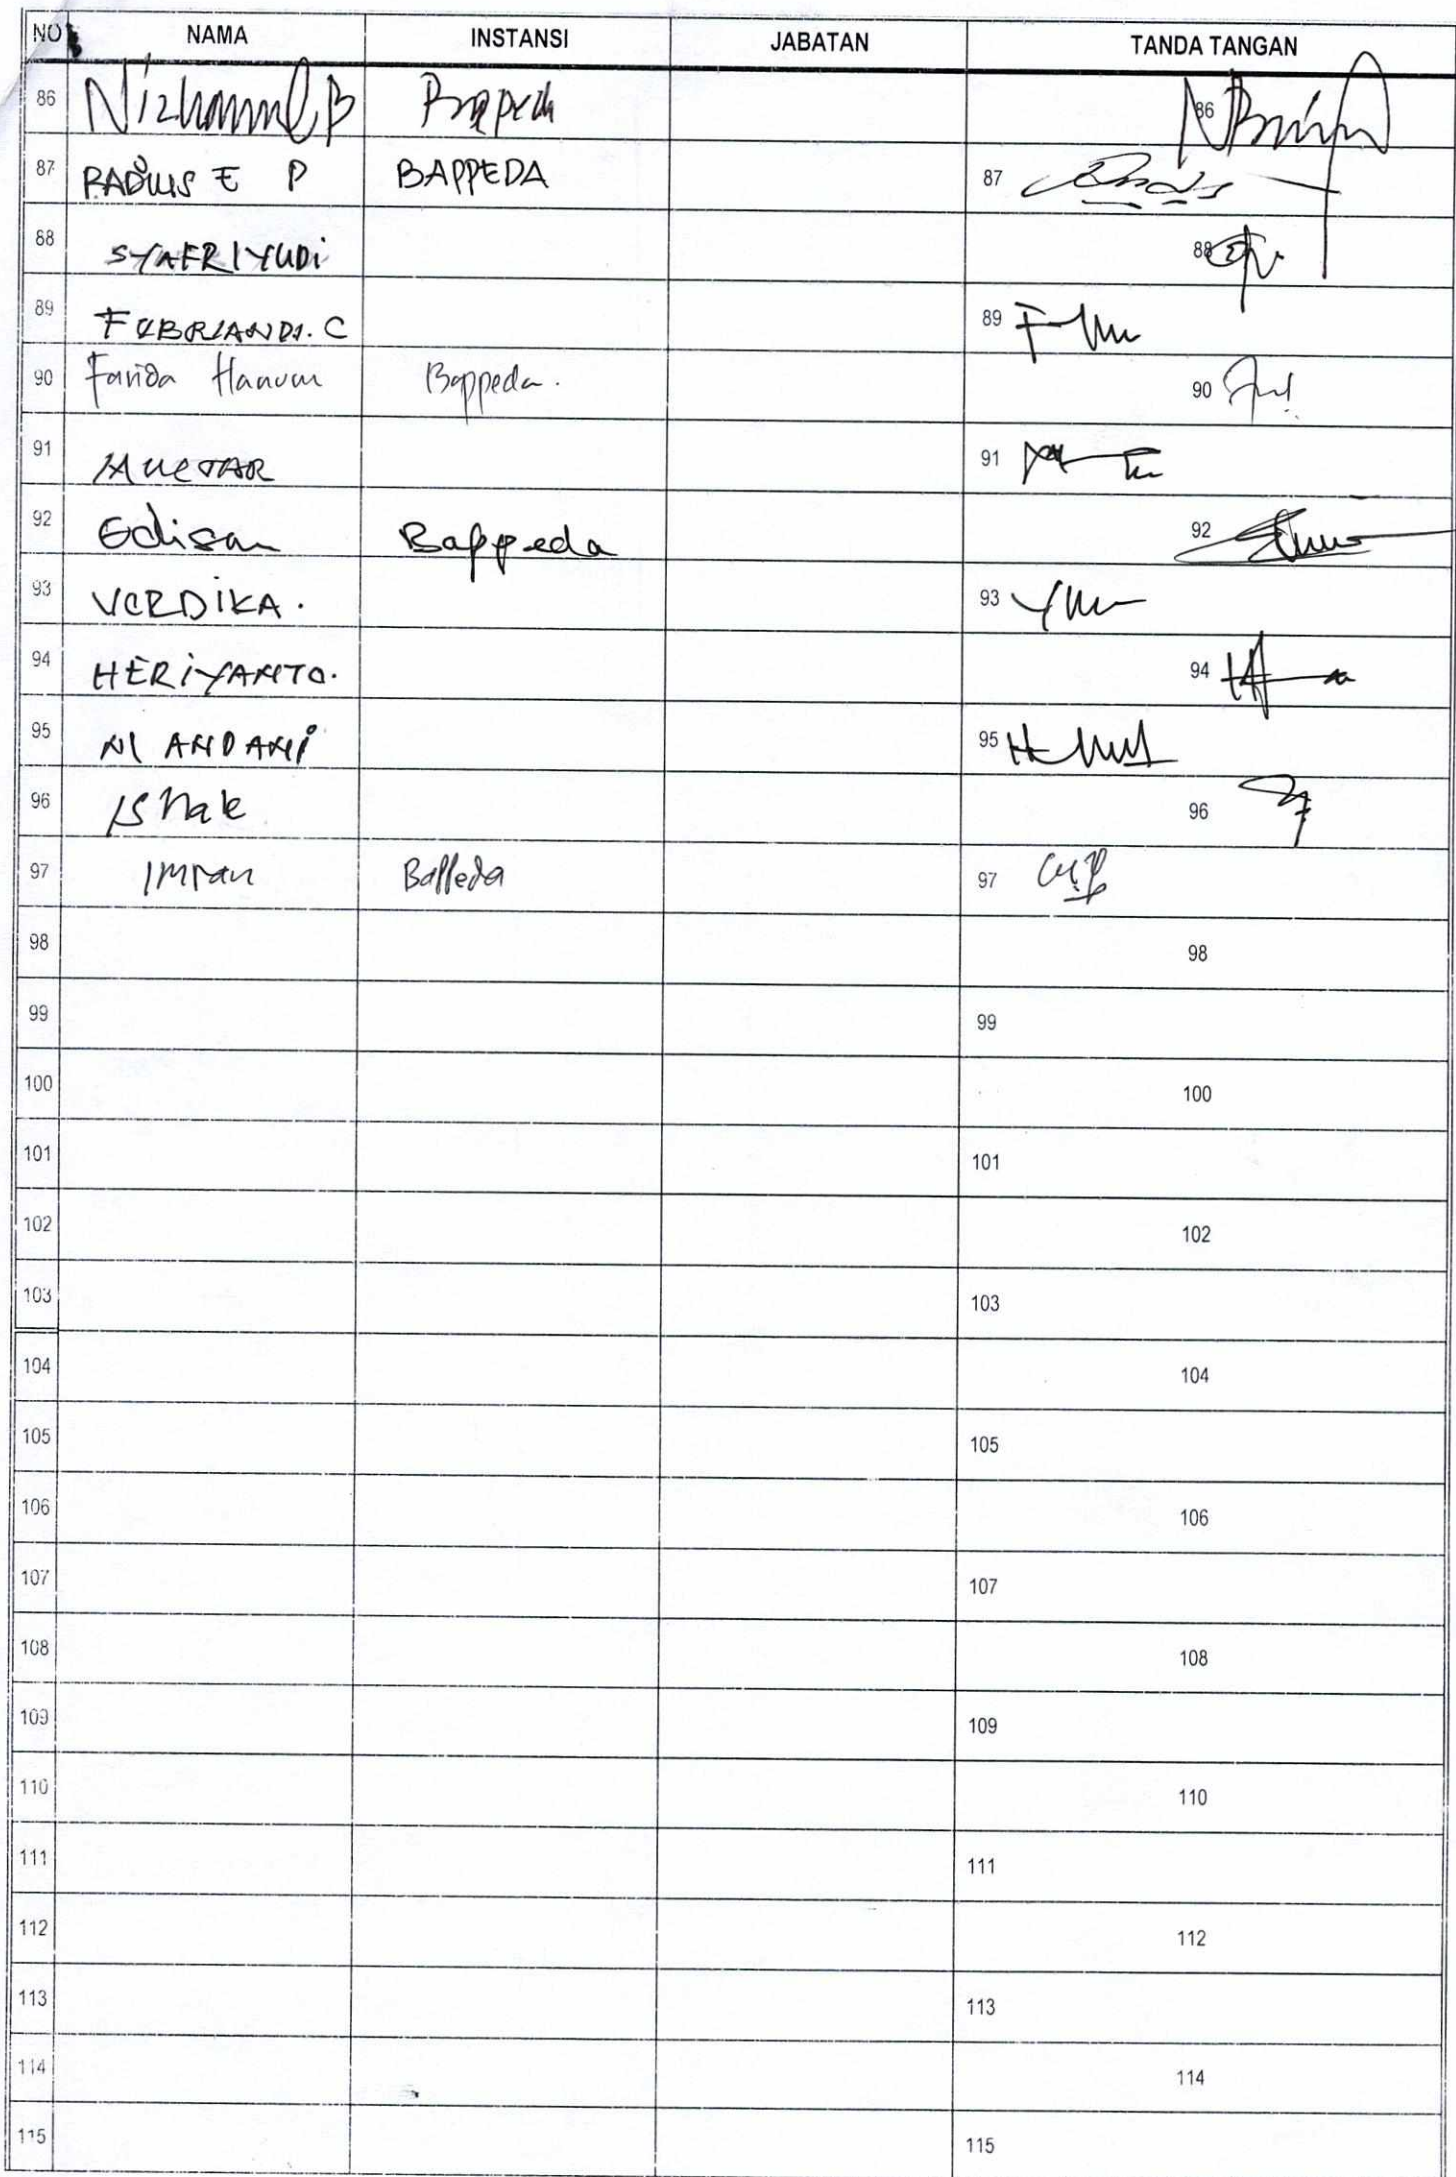 NO NAMA INSTANSI JABATAN TANDA TANGAN
86 Bappeda 86
87 RADIUS E P BAPPEDA 87
88 SYAFRIYUDI 88
89 FEBRIANDI. C 89
90 Farida Hanum Bappeda. 90
91 MUCTAR 91
92 Edison Bappeda 92
93 VERDIKA. 93
94 HERIYANTO. 94
95 95
96 Ishak 96
97 Imran Bappeda 97
98 98
99 99
100 100
101 101
102 102
103 103
104 104
105 105
106 106
107 107
108 108
109 109
110 110
111 111
112 112
113 113
114 114
115 115